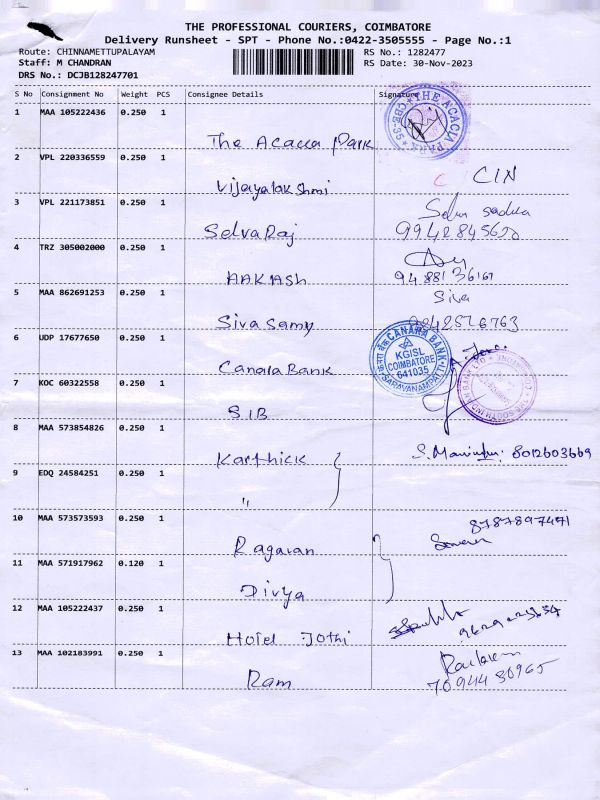 THE PROFESSIONAL COURIERS, COIMBATORE
Delivery Runsheet - SPT - Phone No.:0422-3505555 - Page No.:1
Route: CHINNAMETTUPALAYAM RS No.: 1282477
Staff: M CHANDRAN RS Date: 30-Nov-2023
DRS No.: DCJB128247701
S No Consignment No Weight PCS Consignee Details Signature
1 MAA 105222436 0.250 1
The Acacia Park
THE ACACIA PARK
2 VPL 220336559 0.250 1
Vijayalakshmi CIN
3 VPL 221173851 0.250 1
Selvaraj
4 TRZ 305002000 0.250 1
AAKASH
5 MAA 862691253 0.250 1 Siva
Sivasamy
6 UDP 17677650 0.250 1
Canara Bank
CANARA BANK
KGISL
COIMBATORE
641035
SARAVANAMPATTI
7 KOC 60322558 0.250 1
SIB
8 MAA 573854826 0.250 1
Karthick 8012603669
9 EDQ 24584251 0.250 1
"
10 MAA 573573593 0.250 1
Ragavan
11 MAA 571917962 0.120 1
Divya
12 MAA 105222437 0.250 1
Hotel Jothi
13 MAA 102183991 0.250 1
Ram 7094430965